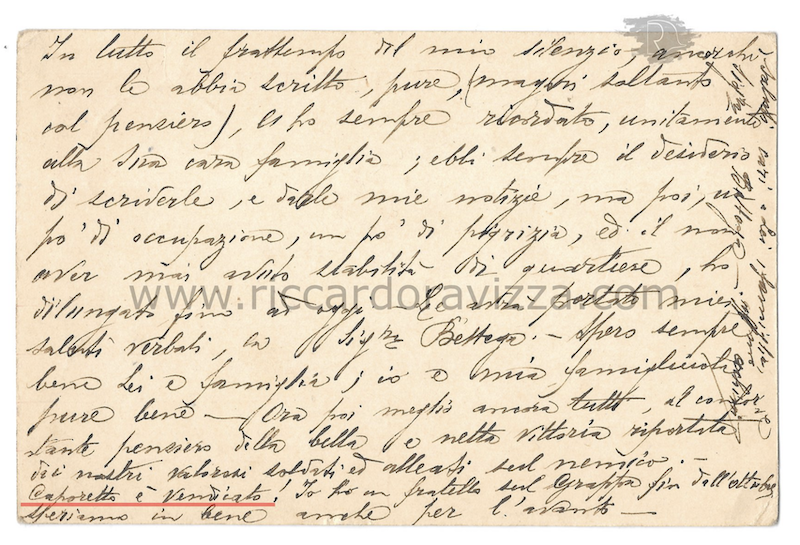 In tutto il frattempo del mio silenzio, ancorchè
non le abbia scritto, pure, (magari soltanto
col pensiero), La ho sempre ricordato, unitamente
alla Sua cara famiglia; ebbi sempre il desiderio
di scriverle, e darle mie notizie, ma poi, un
po' di occupazione, un po' di pigrizia, ed il non
aver mai avuto stabilità di quartiere, ho
dilungato fino ad oggi - Le avrà portato miei
saluti verbali, la Sigra Bettega. - Spero sempre
bene Lei e famiglia; io e mia famigliuola
pure bene - Ora poi meglio ancora tutti, al confor-
tante pensiero della bella e netta vittoria riportata
dai nostri valorosi soldati ed alleati sul nemico. -
Caporetto è vendicato! Io ho un fratello sul Grappa fin dall'ottobre
speriamo in bene anche per l'avanti -
Saluti cari a Lei, famiglia,
www.riccardoravizza.com
R